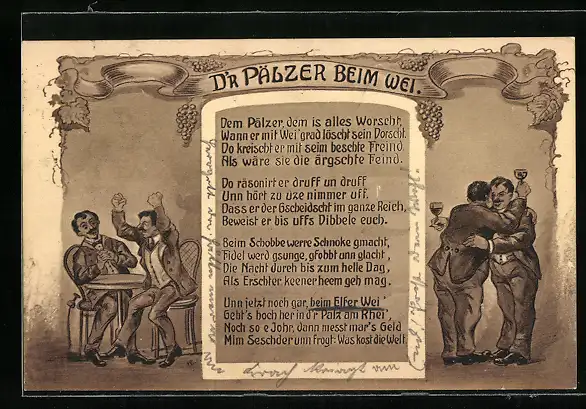 D'R PÄLZER BEIM WEI.
Dem Pälzer, dem is alles Worscht,
Wann er mit Wei' grad löscht sein Dorscht.
Do kreischt er mit seim beschte Freind,
Als wäre sie die ärgschte Feind.
Do räsonirt er druff un druff
Unn hört zu uze nimmer uff,
Dass er der Gscheidscht im ganze Reich,
Beweist er bis uffs Dibbele euch.
Beim Schobbe werre Schnoke gmacht,
Fidel werd gsunge, gfobbt unn glacht,
Die Nacht durch bis zum helle Dag,
Als Erschter keener heem geh mag.
Unn jetzt noch gar, beim Elfer Wei'
Geht's hoch her in d'r Palz am Rhei',
Noch so e Johr, dann messt mar's Geld
Mim Seschder unn frogt: Was kost die Welt